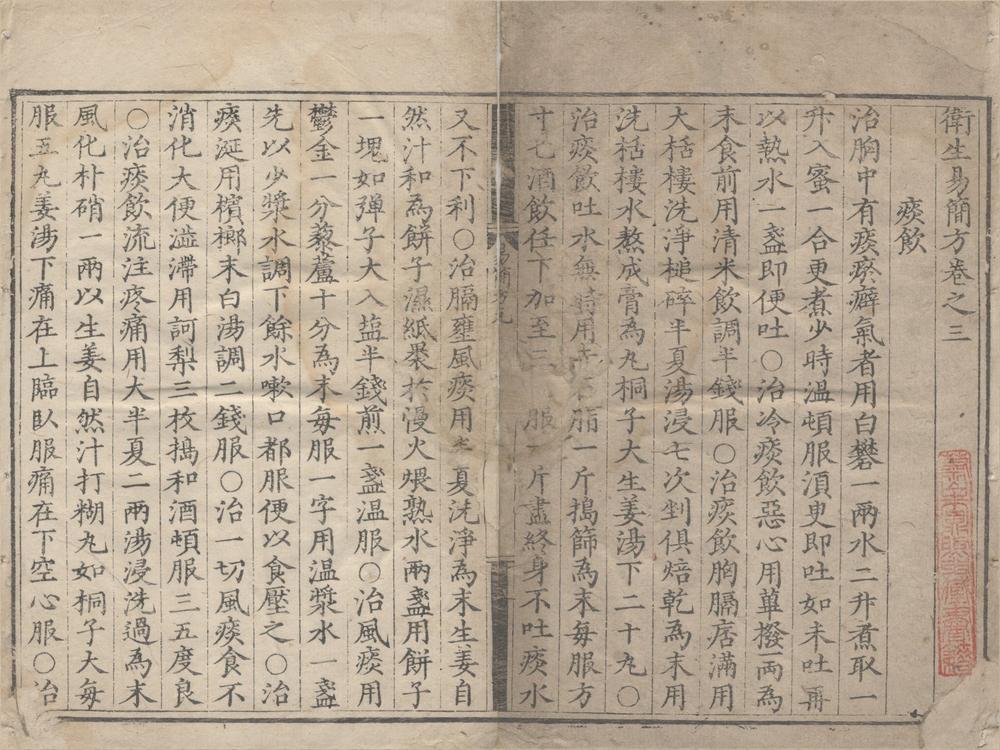 衛生易簡方卷之三
痰飲
治胸中有痰瘀癖氣者用白礬一兩水二升煮取一
升入蜜一合更煮少時温頓服湏臾即吐如未吐再
以熱水一盞即便吐○治冷痰飲惡心用蓽撥一兩為
末食前用清米飲調半錢服○治痰飲胸膈痞滿用
大栝樓洗淨槌碎半夏湯浸七次剉俱焙乾為末用
洗栝樓水熬成膏為丸桐子大生姜湯下二十丸○
治痰飲吐水無時用赤石脂一斤搗篩為末毎服方
寸匕酒飲任下加至三 服一斤盡終身不吐痰水
又不下利○治膈壅風痰用半夏洗淨為末生姜自
然汁和為餅子濕紙褁於慢火煨熟水兩盞用餅子
一塊如弹子大入塩半錢煎一盞温服○治風痰用
鬱金一分藜蘆十分為末毎服一字用温漿水一盞
先以少漿水調下餘水嗽口都服便以食壓之○治
痰涎用檳榔末白湯調二錢服○治一切風痰食不
消化大便澁滯用訶梨三枚搗和酒頓服三五度良
○治痰飲流注疼痛用大半夏二兩湯浸洗過為末
風化朴硝一兩以生姜自然汁打糊丸如桐子大每
服五丸姜湯下痛在上臨臥服痛在下空心服○治